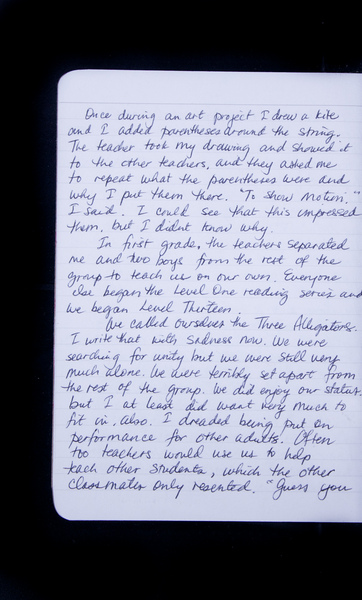 Once during an art project I drew a kite
and I added parentheses around the string.
The teacher took my drawing and showed it
to the other teachers, and they asked me
to repeat what the parentheses were and
why I put them there. "To show motion."
I said. I could see that this impressed
them, but I didnt know why.
In first grade, the teachers separated
me and two boys from the rest of the
group to teach us on our own. Everyone
else began the Level One reading series and
we began Level Thirteen.
We called ourselves the Three Alligators.
I write that with sadness now. We were
searching for unity but we were still very
much alone. We were terribly set apart from
the rest of the group. We did enjoy our status.
but I at least did want very much to
fit in, also. I dreaded being put on
performance for other adults. Often
too teachers would use us to help
teach other students, which the other
classmates only resented. "Guess you